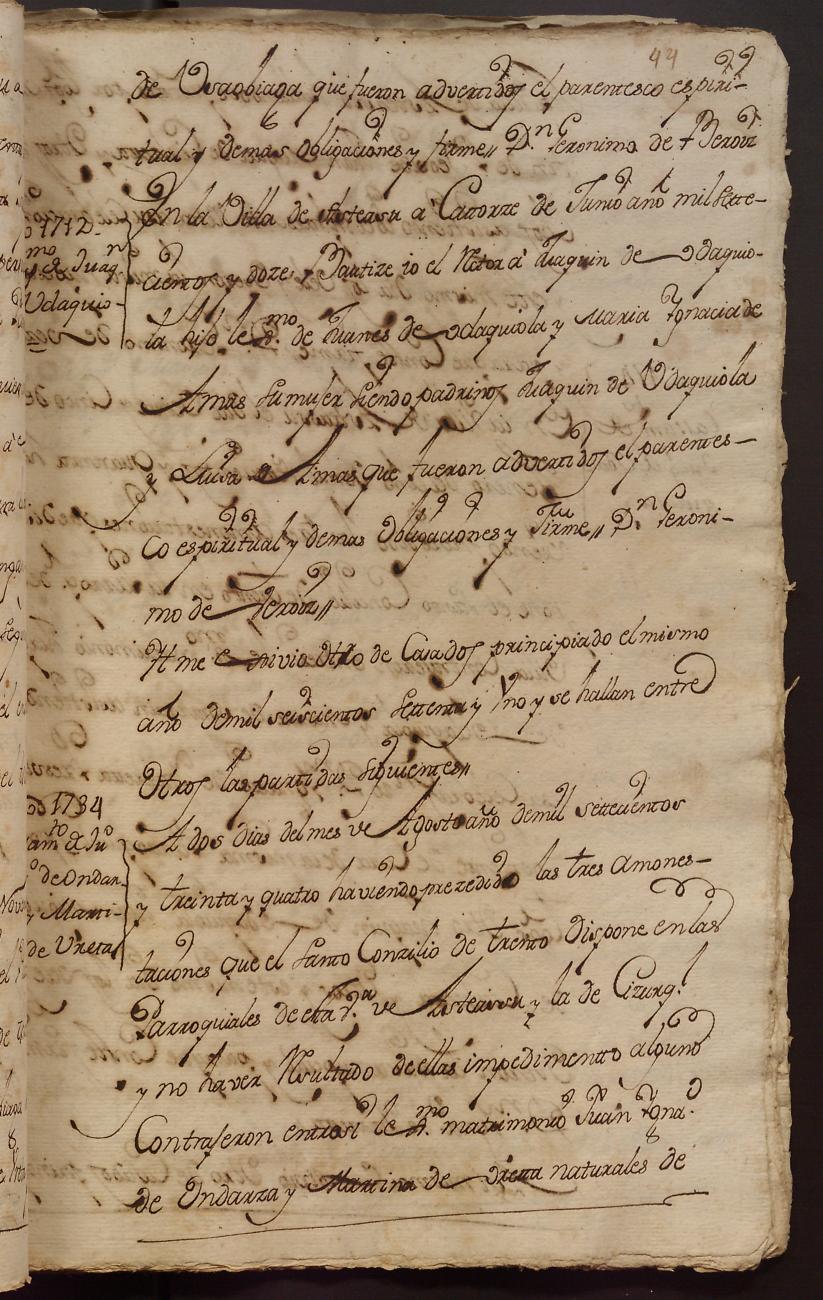 44 99
de Usaobiaga que fueron advertidos el parentesco espiri-
tual y demas obligaciones y firme // D.n Geronimo de Beroiz
En la Villa de Asteasu a Catorze de Junio año mil sette-
cientos y doze, Bautize io el Retor a Juaquin de Udaquio-
la hijo le.mo de Juanes de Udaquiola y Maria Ygnacia de
Amas su muger siendo padrinos Juaquin de Udaquiola
y Luisa de Amas que fueron advertidos el parentes-
co espiritual y demas obligaciones y firme // D.n Geroni-
mo de Beroiz //
Ytt me exivio otro de Casados principiado el mismo
año de mil seiscientos settenta y Uno y se hallan entre
Otros las partidas siguientes //
A dos dias del mes de Agosto año de mil settecientos
y treinta y quatro haviendo prezedido las tres amones-
taciones que el Santo Conzilio de trento dispone en las
Parroquiales de esta v.a de Asteassu y la de Cizurq.l
y no haver Resultado de ellas impedimento alguno
Contrageron entre si le.mo matrimonio Juan Ygna.o
de Ondarza y Martina de Ureta naturales de
1712
Juaq.n
Udaquio-
1734
de Ondar-
y Marti-
de Ureta